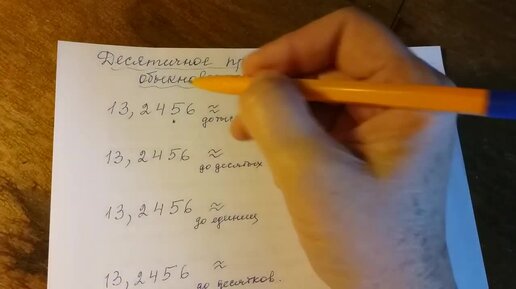 Десятичное
13,2456 ≈
13,2456 ≈
до десятых
13,2456 ≈
до единиц
13,2456 ≈
до десятков.